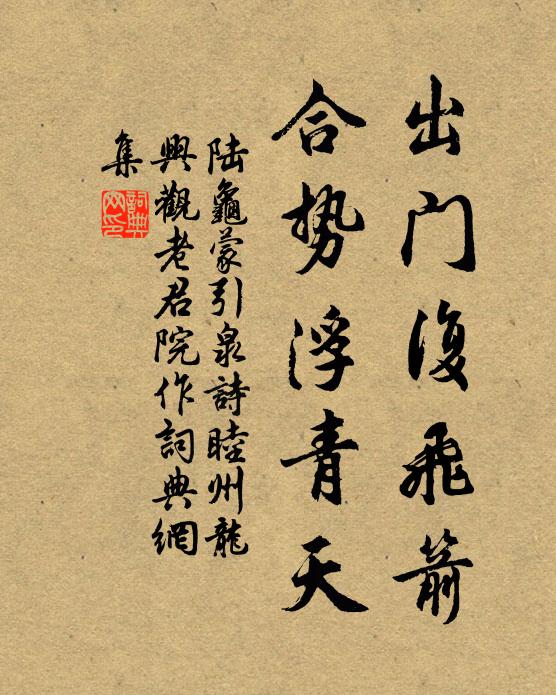 出门復飛箭
合势浮青天
陆龜蒙引泉詩睦州龍
興觀老君院作詞典網
集
詞典
网印